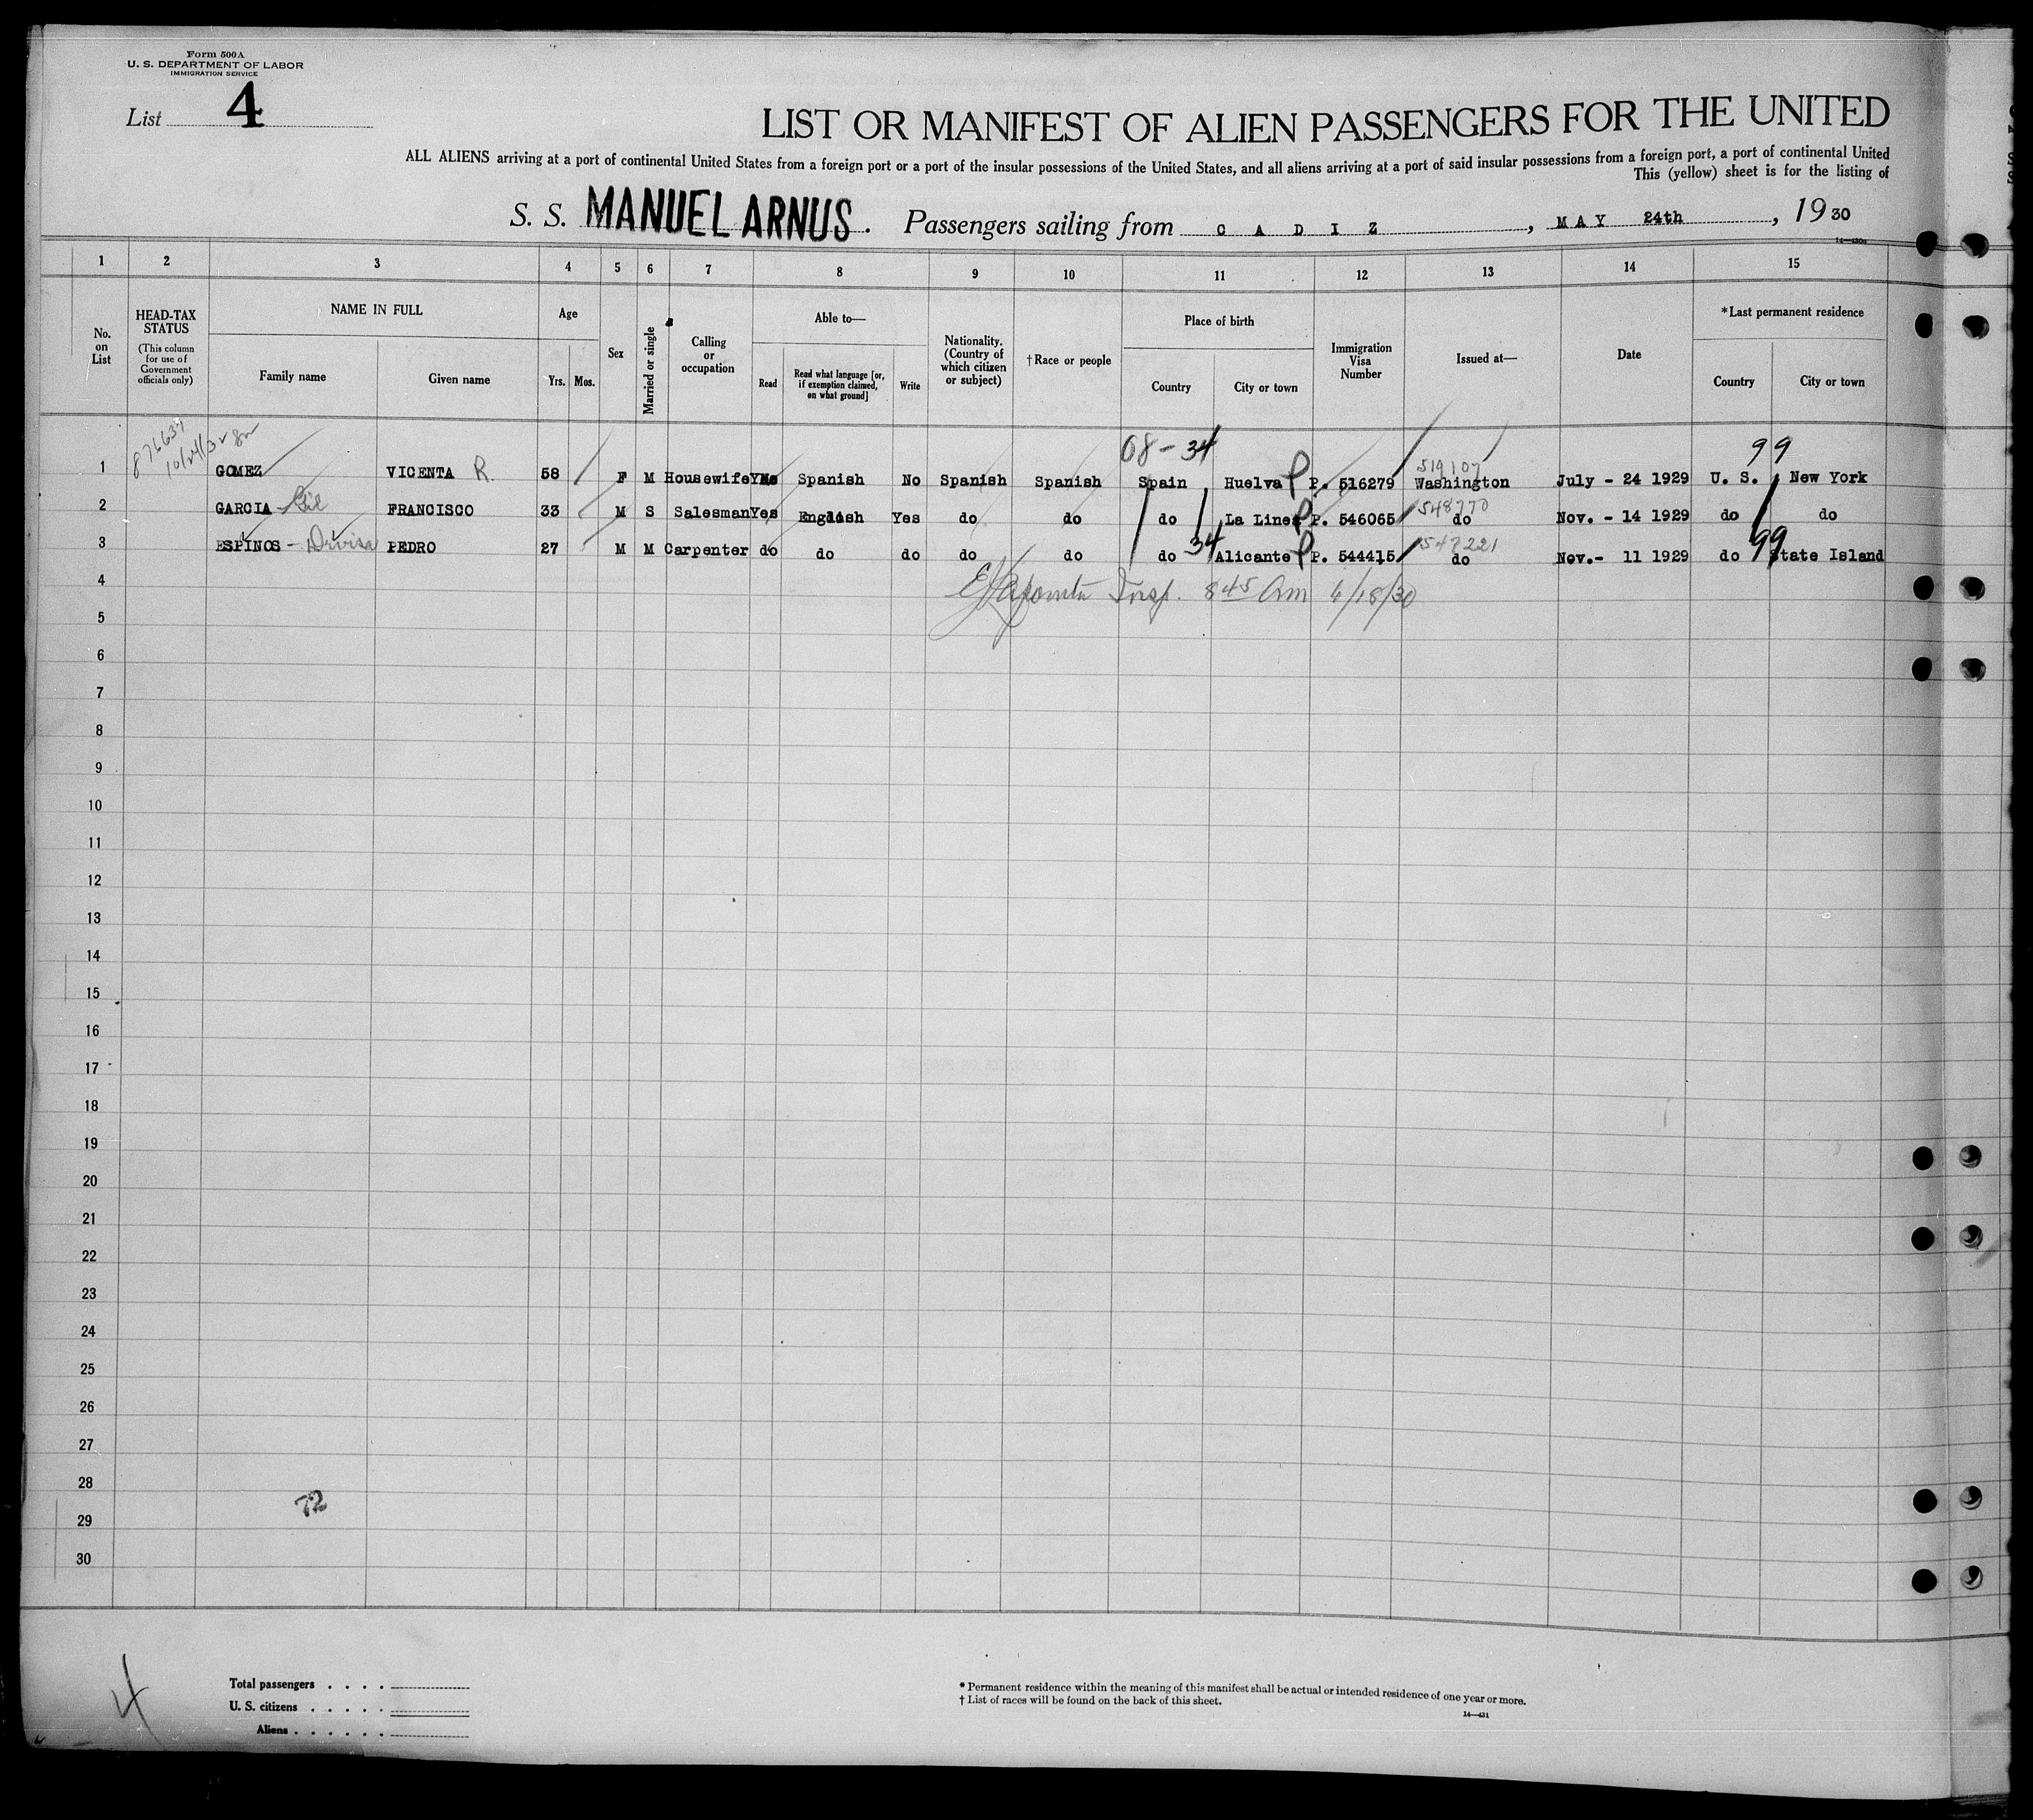 Form 500A
U. S. DEPARTMENT OF LABOR
IMMIGRATION SERVICE
List 4
LIST OR MANIFEST OF ALIEN PASSENGERS FOR THE UNITED
ALL ALIENS arriving at a port of continental United States from a foreign port or a port of the insular possessions of the United States, and all aliens arriving at a port of said insular possessions from a foreign port, a port of continental United
This (yellow) sheet is for the listing of
S. S. MANUEL ARNUS. Passengers sailing from C A D I Z, MAY 24th, 1930
1 2 3 4 5 6 7 8 9 10 11 12 13 14 15
No. on List
HEAD-TAX STATUS
(This column for use of Government officials only)
NAME IN FULL
Family name Given name
Age
Yrs. Mos.
Sex
Married or single
Calling or occupation
Able to—
Read
Read what language [or, if exemption claimed, on what ground]
Write
Nationality. (Country of which citizen or subject)
†Race or people
Place of birth
Country City or town
Immigration Visa Number
Issued at—
Date
*Last permanent residence
Country City or town
08-34 99
519107
1 GOMEZ VICENTA R. 58 F M Housewife Spanish No Spanish Spanish Spain Huelva P P. 516279 Washington July - 24 1929 U. S. New York
548770
2 GARCIA - Gil FRANCISCO 33 M S Salesman Yes English Yes do do do La Linea P P. 546065 do Nov. - 14 1929 do do
547221
3 ESPINOS - PEDRO 27 M M Carpenter do do do do do do 34 Alicante P P. 544415 do Nov.- 11 1929 do 99 State Island
4 Insp. 845 Am 6/18/30
5
6
7
8
9
10
11
12
13
14
15
16
17
18
19
20
21
22
23
24
25
26
27
28
72
29
30
4
Total passengers . . . .
U. S. citizens . . . . .
Aliens . . . . . .
* Permanent residence within the meaning of this manifest shall be actual or intended residence of one year or more.
† List of races will be found on the back of this sheet.
14—431